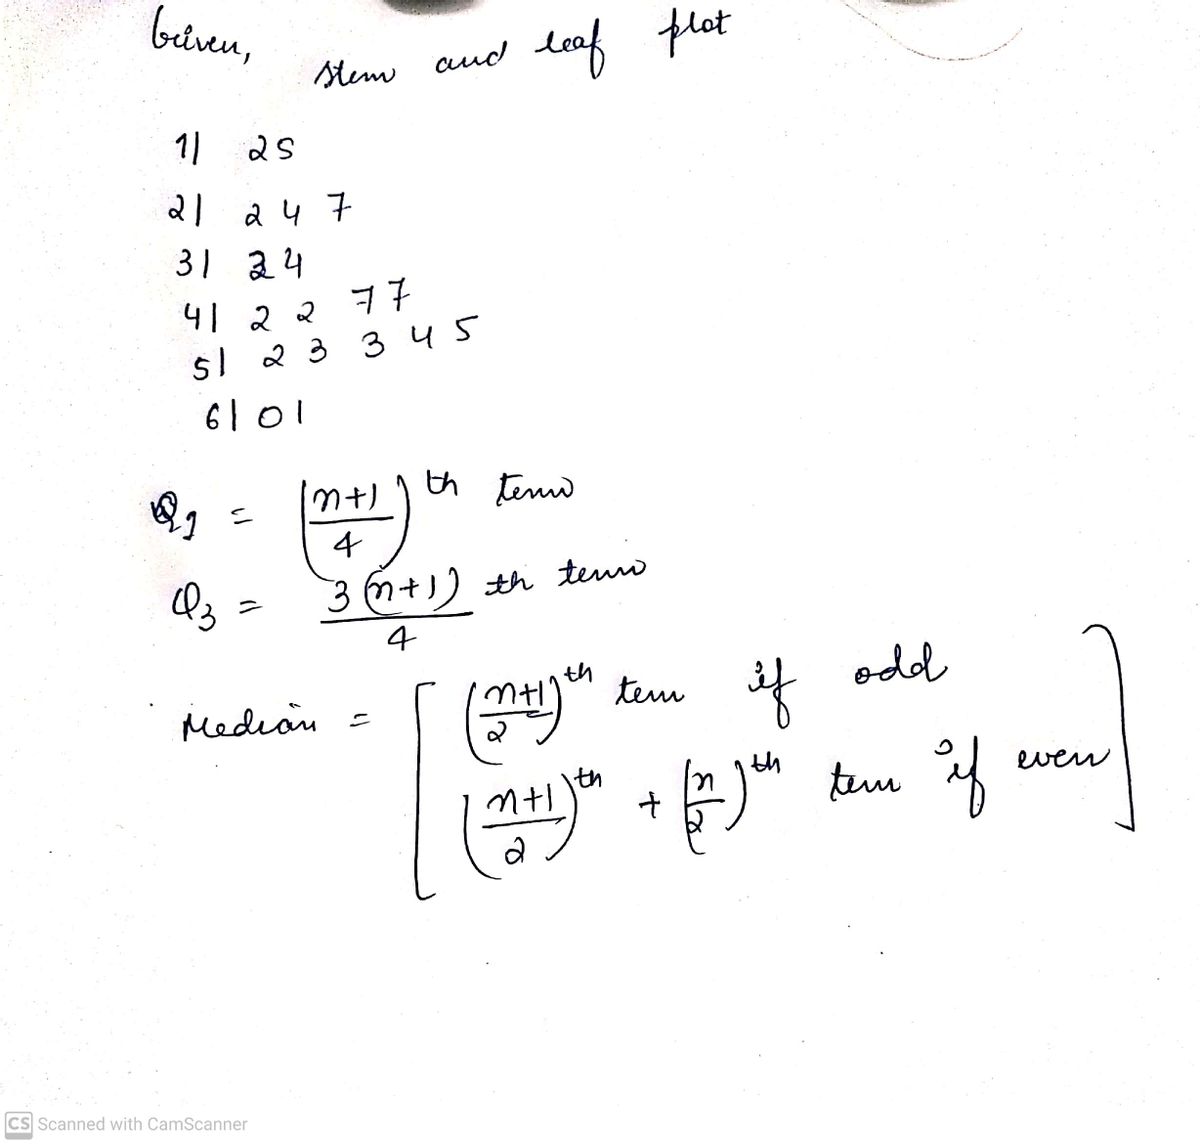 Given,
stem and leaf plot
1| 2 5
2| 2 4 7
3| 4
4| 2 2 7 7
5| 2 3 3 4 5
6| 0 1
Q1 = (n+1 / 4) th term
Q3 = 3(n+1) / 4 th term
Median = [ (n+1 / 2)th term if odd
(n+1 / 2)th + (n / 2)th term if even ]
CS Scanned with CamScanner